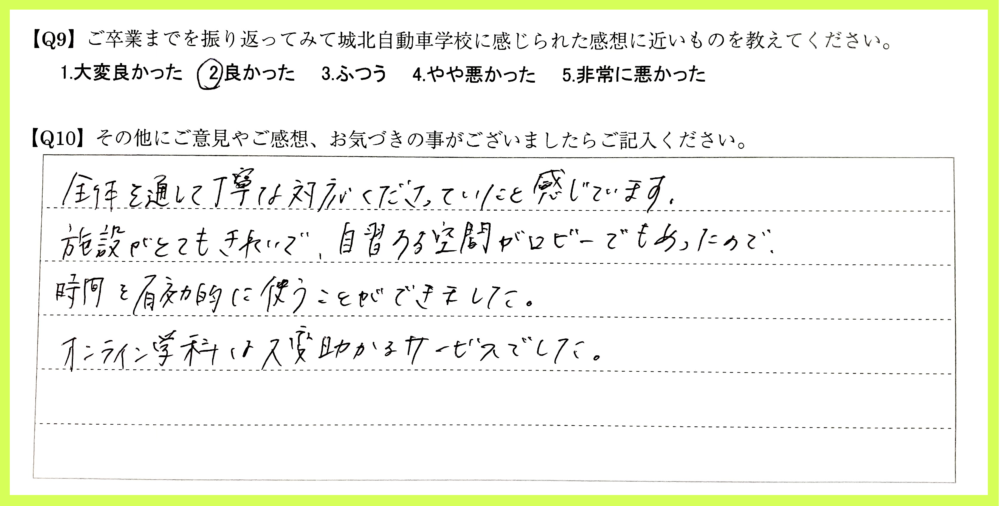 【Q9】ご卒業までを振り返ってみて城北自動車学校に感じられた感想に近いものを教えてください。
1.大変良かった 2.良かった 3.ふつう 4.やや悪かった 5.非常に悪かった
【Q10】その他にご意見やご感想、お気づきの事がございましたらご記入ください。
全体を通して丁寧な対応くださっていたと感じています。
施設がとてもきれいで、自習する空間がロビーでもあったので、
時間を有効的に使うことができました。
オンライン学科は大変助かるサービスでした。